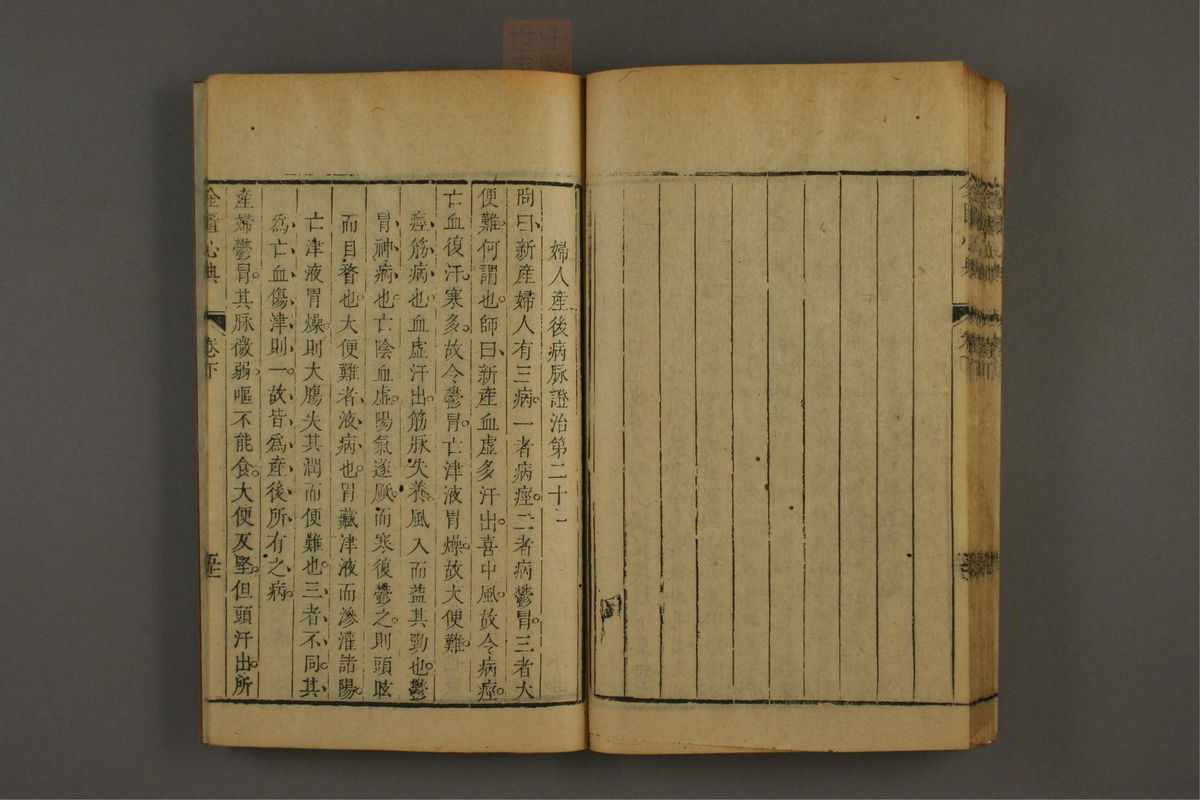 婦人產後病脉證治第二十一
問曰新產婦人有三病一者病痙二者病鬱冒三者大
便難何謂也師曰新產血虛多汗出喜中風故令病痙
亡血復汗寒多故令鬱冒亡津液胃燥故大便難
痙筋病也血虛汗出筋脉失養風入而益其勁也鬱
冒神病也亡陰血虛陽氣遂厥而寒復鬱之則頭眩
而目瞀也大便難者液病也胃藏津液而滲灌諸陽
亡津液胃燥則大腸失其潤而便難也三者不同其
爲亡血傷津則一故皆爲產後所有之病
產婦鬱冒其脉微弱嘔不能食大便反堅但頭汗出所
金匱心典 卷下